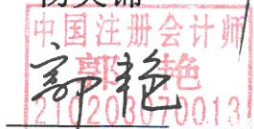 中国注册会计师
郭艳
210203070013